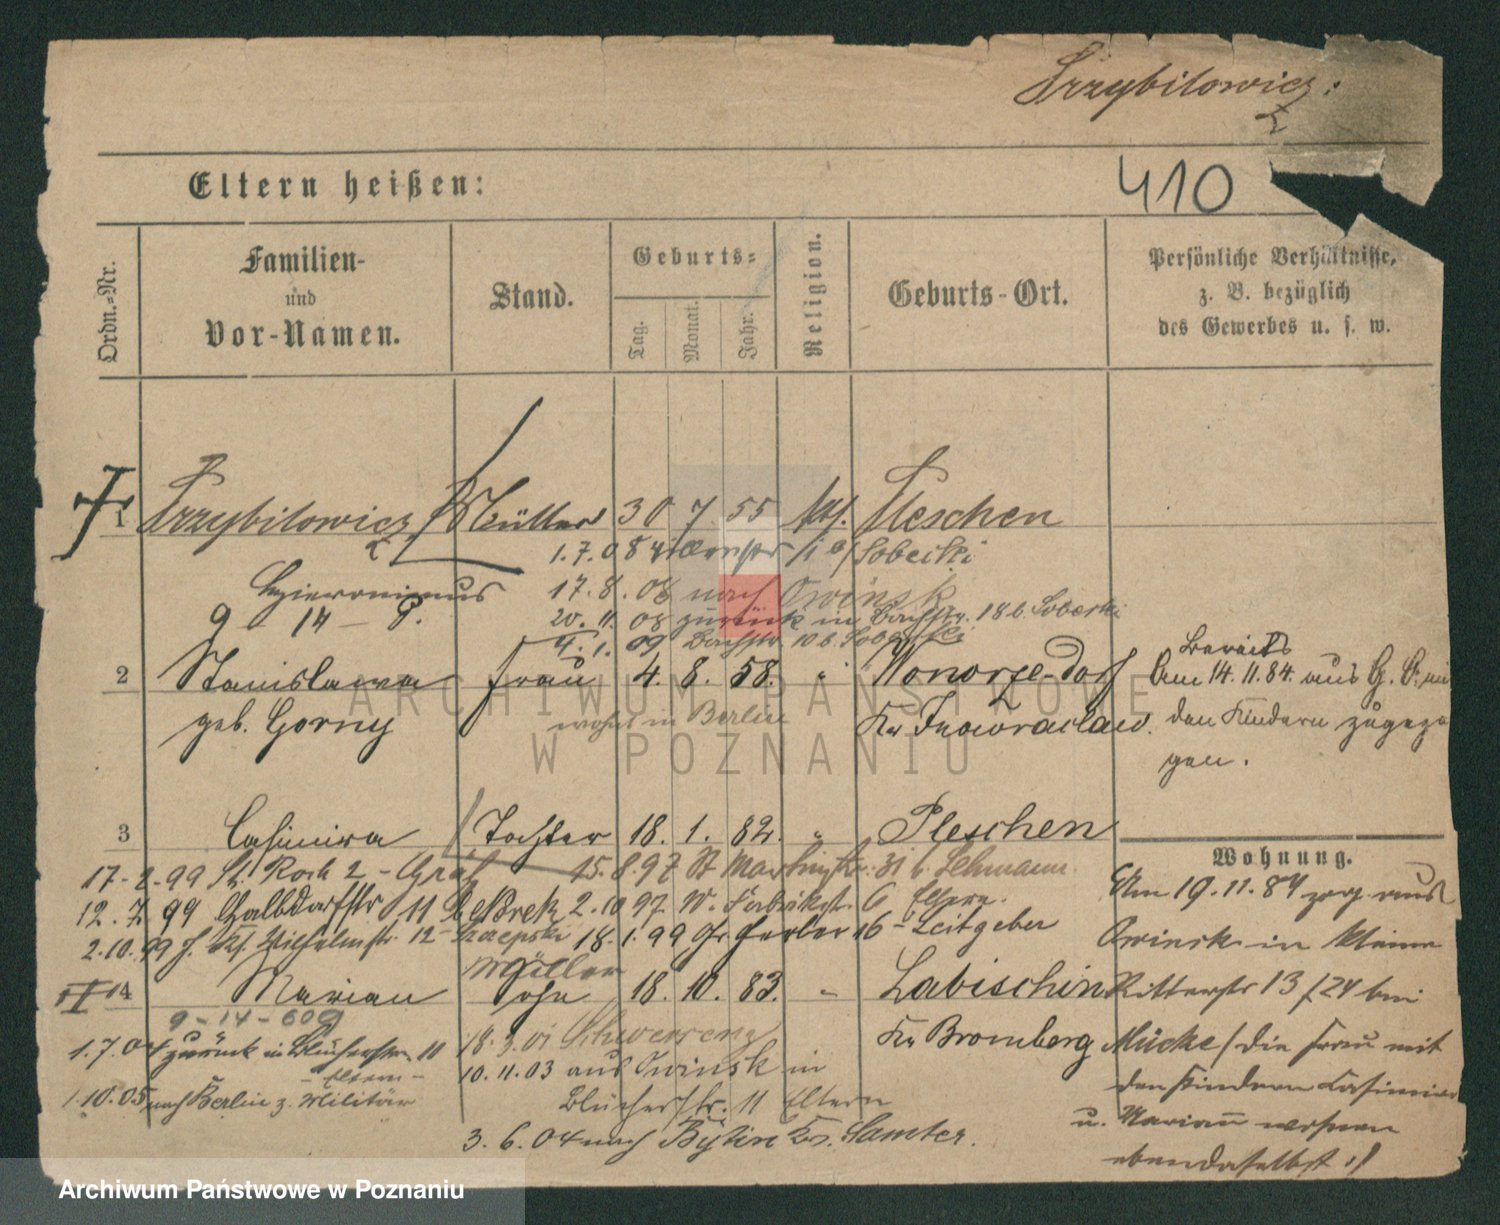 Przybilowicz
410
Eltern heißen:
Ordn.-Nr.
Familien-
und
Vor-Namen.
Stand.
Geburts-
Tag.
Monat.
Jahr.
Religion.
Geburts-Ort.
Persönliche Verhältnisse,
z. B. bezüglich
des Gewerbes u. s. w.
1 Przybilowicz Müller 30 7 55 kath. Pleschen
1.7.08 Sobecki
Hieronimus 17.8.08 nach Owinsk
9 - 14 - P. 20.11.08 zurück in Bachstr. 18 b. Sobecki
4.1.09 Bachstr. 10 b. Sobecki
2 Stanislawa Frau 4. 8. 58. " Wonorze-Dorf
geb. Gorny wohnt in Berlin Kr Inowraclaw.
bereits
Am 14.11.84. aus G.
den Kindern zugezo
gen.
3 Casimira Tochter 18. 1. 82. " Pleschen
17-2-99 St. Roch 2 - 15.8.97 St Martinstr. 31 b. Lehmann
12.7.99 11 2.10.97 W. Fabrikstr. 6 Eltern
2.10.99 Wilhelmstr. 12 - Szczepski 18.1.99 Gr. Gerber 16 - Leitgeber
Müller
4 Marian Sohn 18. 10. 83. " Labischin
9 - 14 - 609
1.7.04 zurück in Blücherstr. 11 18.3.01 Schwersenz
- Eltern -
Kr Bromberg
10.11.03 aus Owinsk in
1.10.05 nach Berlin z. Militär
Blücherstr. 11 Eltern
3.6.04 nach Bythin Kr. Samter.
Wohnung.
Am 19.11.84 zog aus
Owinsk in kleine
Ritterstr 13/24 bei
Mücke / die Frau mit
den Kindern Casimira
u. Marian wohnen
ebendaselbst :/
ARCHIWUM PAŃSTWOWE
W POZNANIU
Archiwum Państwowe w Poznaniu